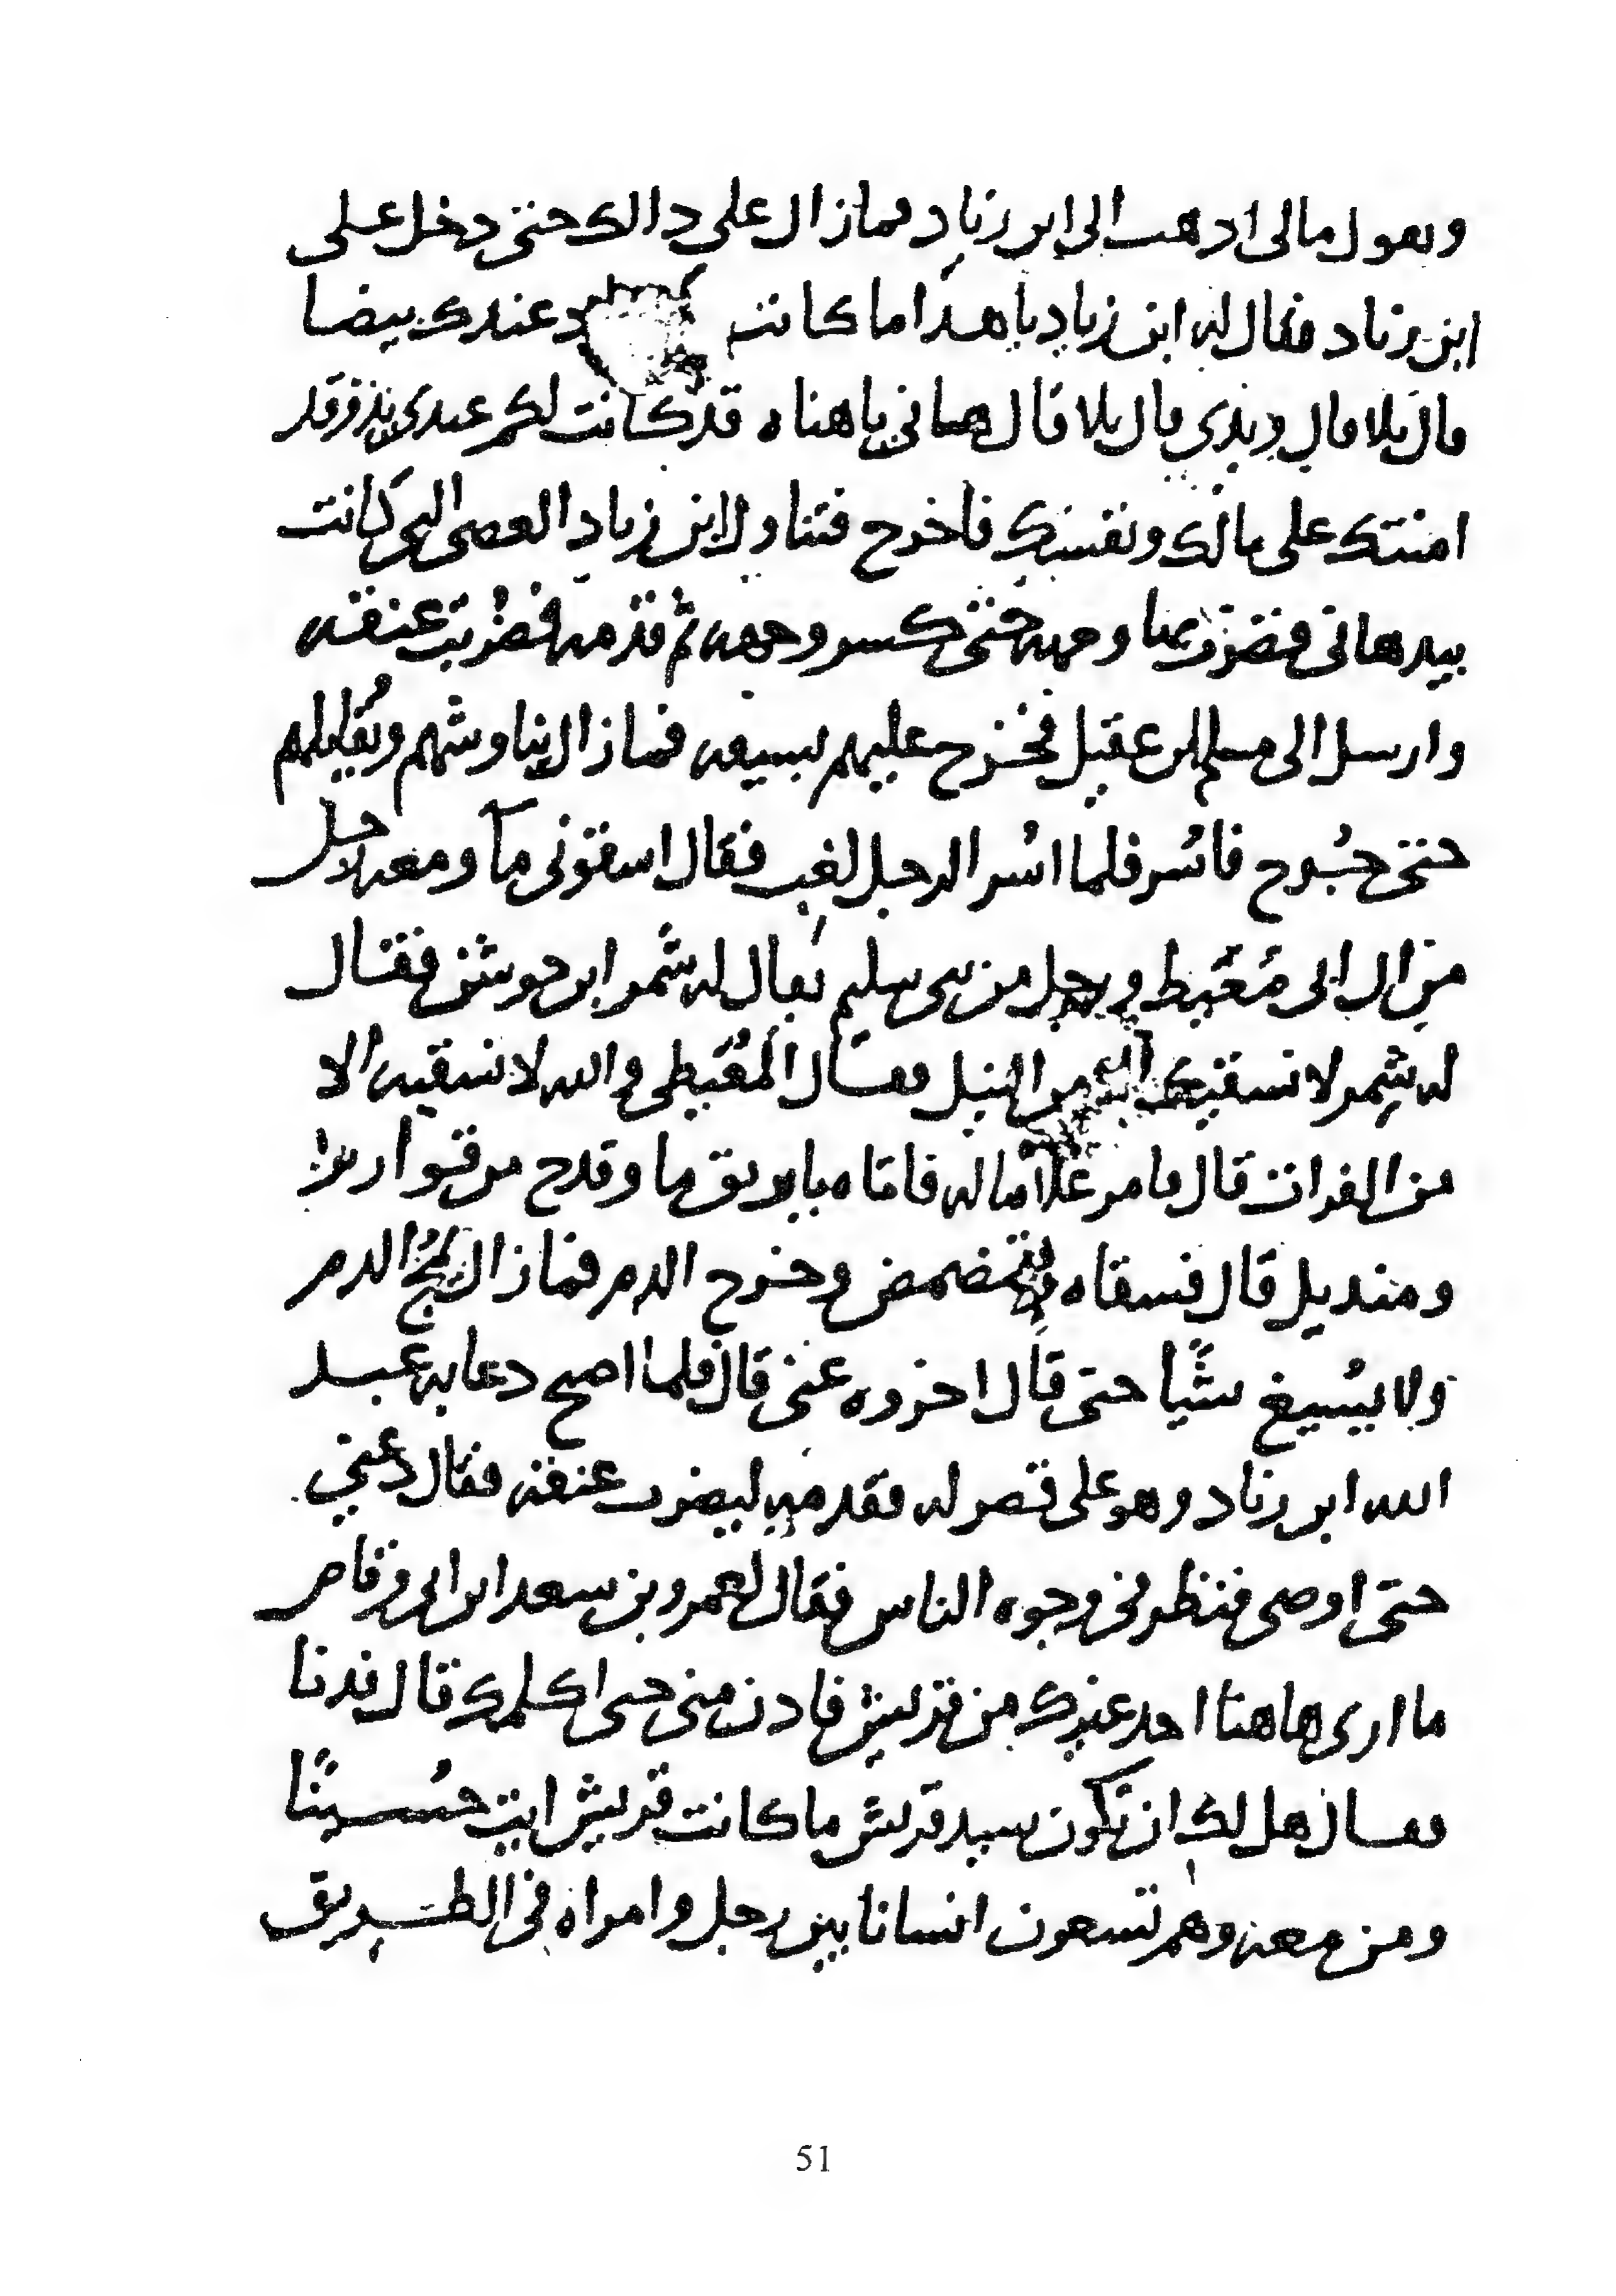 ويقول مالى اذهب الى ابن زياد فمازال على ذالك حتى دخل على
ابن زياد فقال له ابن زياد يا هذا اما كانت عندك بيضا
قال بلا قال ويدي قال بلا قال هانى يا هناه قد كانت لكم عندى يد وقد
امنتك على مالك ونفسك فاخرج فتناول ابن زياد العصى التى كانت
بيد هانى فضرب بها وجهه حتى كسر وجهه ثم قدمه فضربت عنقه
وارسل الى مسلم ابن عقيل فخرج عليهم بسيفه فما زال يناوشهم ويقاتلهم
حتى جُرح فاُسر فلما اُسر الرجل لغب فقال اسقونى مآ ومعه رجل
من ال ابى مُعَيط ورجل من بنى سليم يقال له شمر ابن حوشن فقال
له شمر لا نسقيك الا من البئر فقال المُعَيطى والله لا نسقيه الا
من الفرات قال فامر غلاما له فاتاه بابريق ما وقدح من قوارير
ومنديل قال فسقاه فتمضمض وخرج الدم فما زال يمُجُّ الدم
ولا يُسيغ شيًّا حتى قال اخروه عنى قال فلما اصبح دعا به عبيد
الله ابن زياد وهو على قصر له فقدمه ليضرب عنقه فقال دعني
حتى اوصى فنظر فى وجوه الناس فقال لعمرو بن سعد ابن ابى وقاص
ما ارى هاهنا احد غيرك من قريش فادن منى حتى اكلمك قال فدنا
فقال هل لك ان تكون سيد قريش ما كانت قريش ايت حُسينًا
ومن معه وهم تسعون انسانا بين رجل وامراه فى الطريق
51